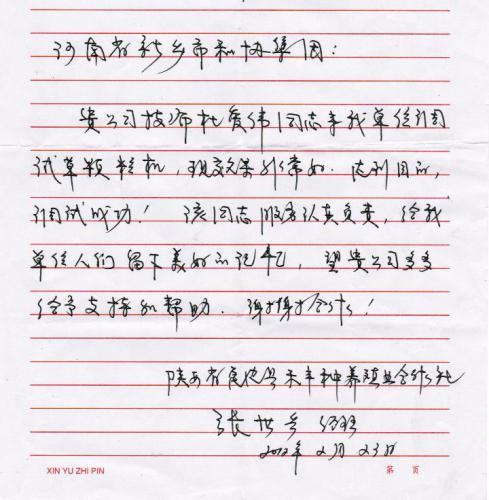 河南省新乡市和协集团:
贵公司技师杜爱伟同志来我单位调
试草颗粒机,现效果非常好.达到目的,
调试成功!该同志服务认真负责,给我
单位人们留下美好的记忆,望贵公司多多
给予支持和帮助.谢谢合作!
陕西省 县禾丰种养殖业合作社
张世
2012年2月23日
XIN YU ZHI PIN
第 页